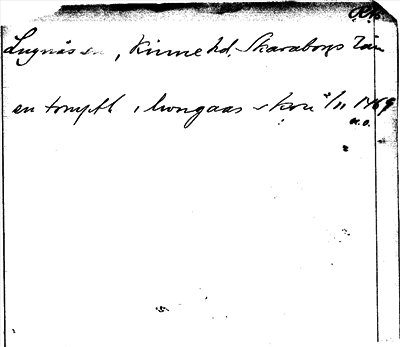 Lugnås sn, Kinne hd. Skaraborgs län
en tompth i lwngaas skn 2/11 1469